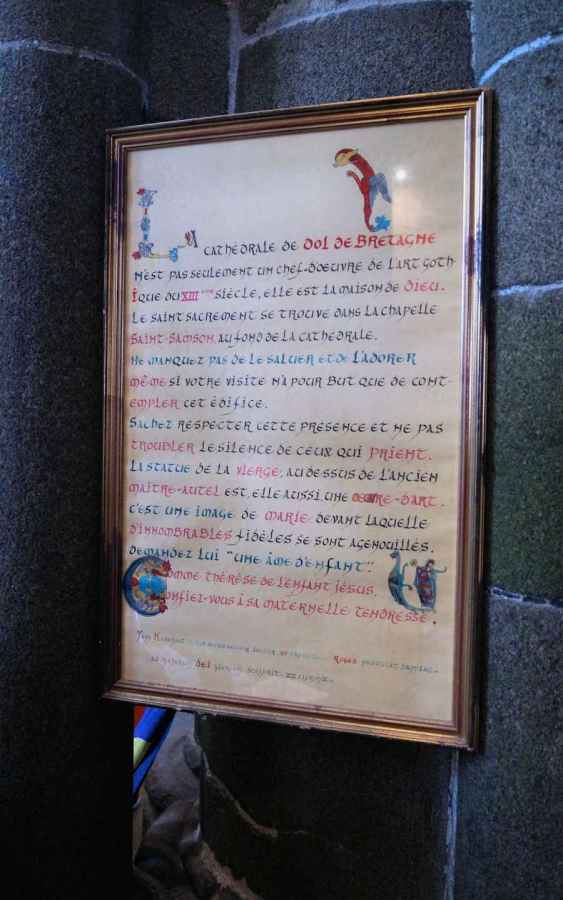 La cathédrale de Dol de Bretagne
n'est pas seulement un chef-d'oeuvre de l'art goth-
ique du XIII ème siècle, elle est la maison de Dieu.
Le Saint Sacrement se trouve dans la chapelle
Saint-Samson, au fond de la cathédrale.
Ne manquez pas de le saluer et de l'adorer
même si votre visite n'a pour but que de cont-
empler cet édifice.
Sachez respecter cette présence et ne pas
troubler le silence de ceux qui prient.
La statue de la Vierge, au dessus de l'ancien
maître-autel est, elle aussi, une oeuvre-d'art.
C'est une image de Marie devant laquelle
d'innombrables fidèles se sont agenouillés.
Demandez lui "une âme d'enfant".
Comme Thérèse de l'enfant Jésus,
confiez-vous à sa maternelle tendresse.